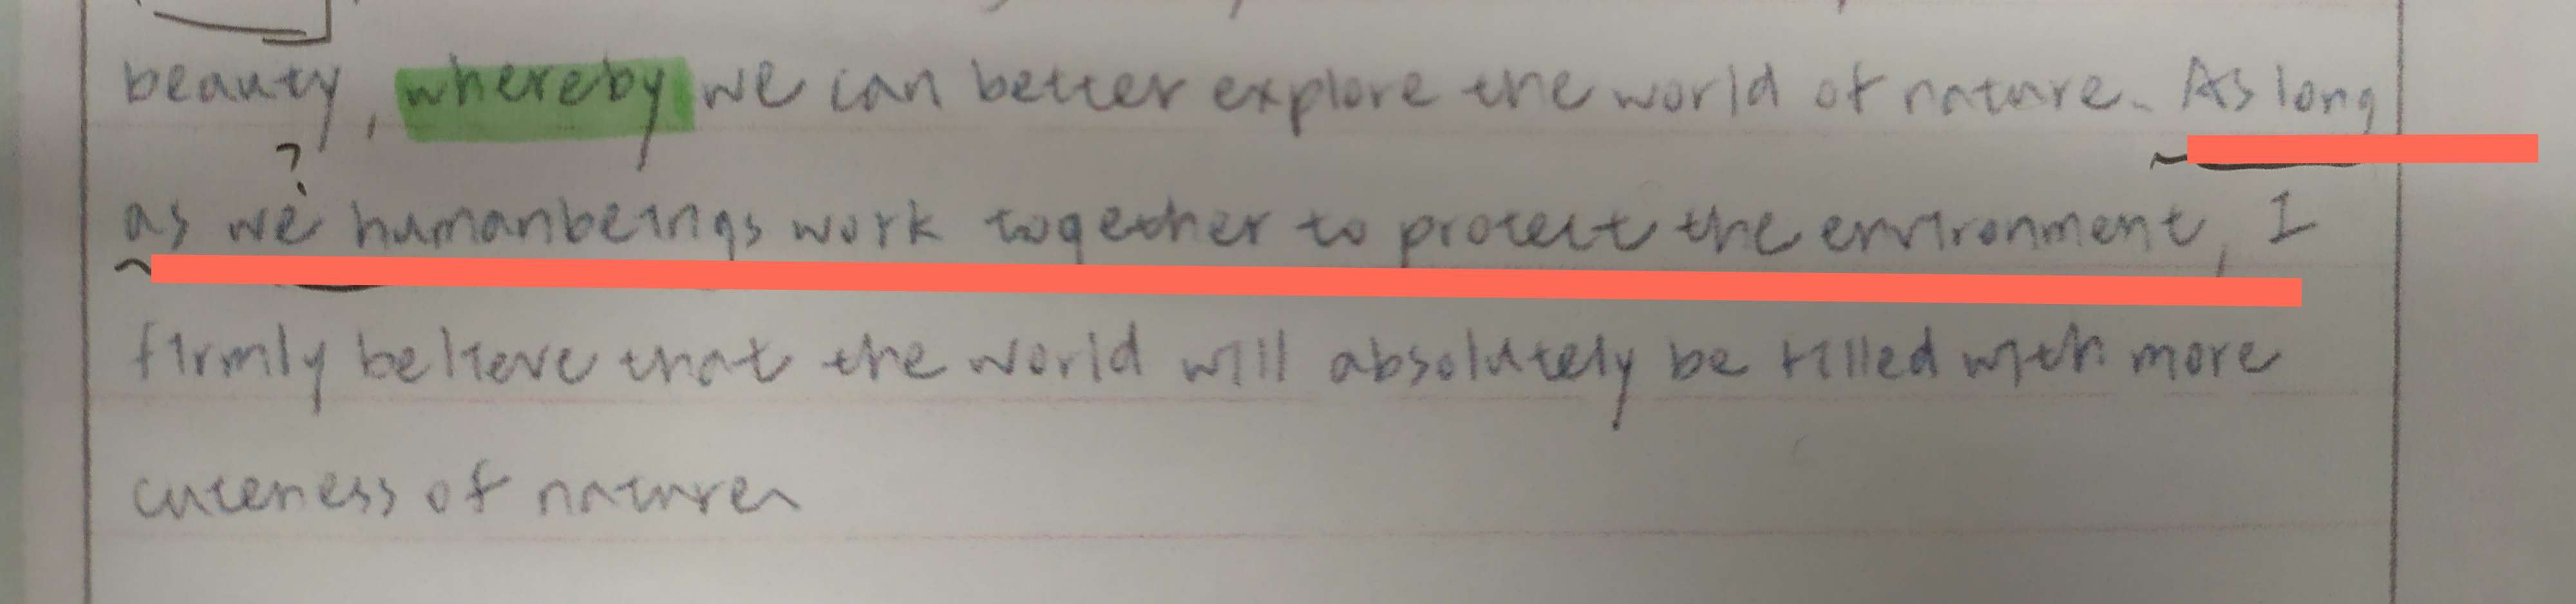 beauty, whereby we can better explore the world of nature. As long
?
as we humanbeings work together to protect the environment, I
firmly believe that the world will absolutely be filled with more
cuteness of nature